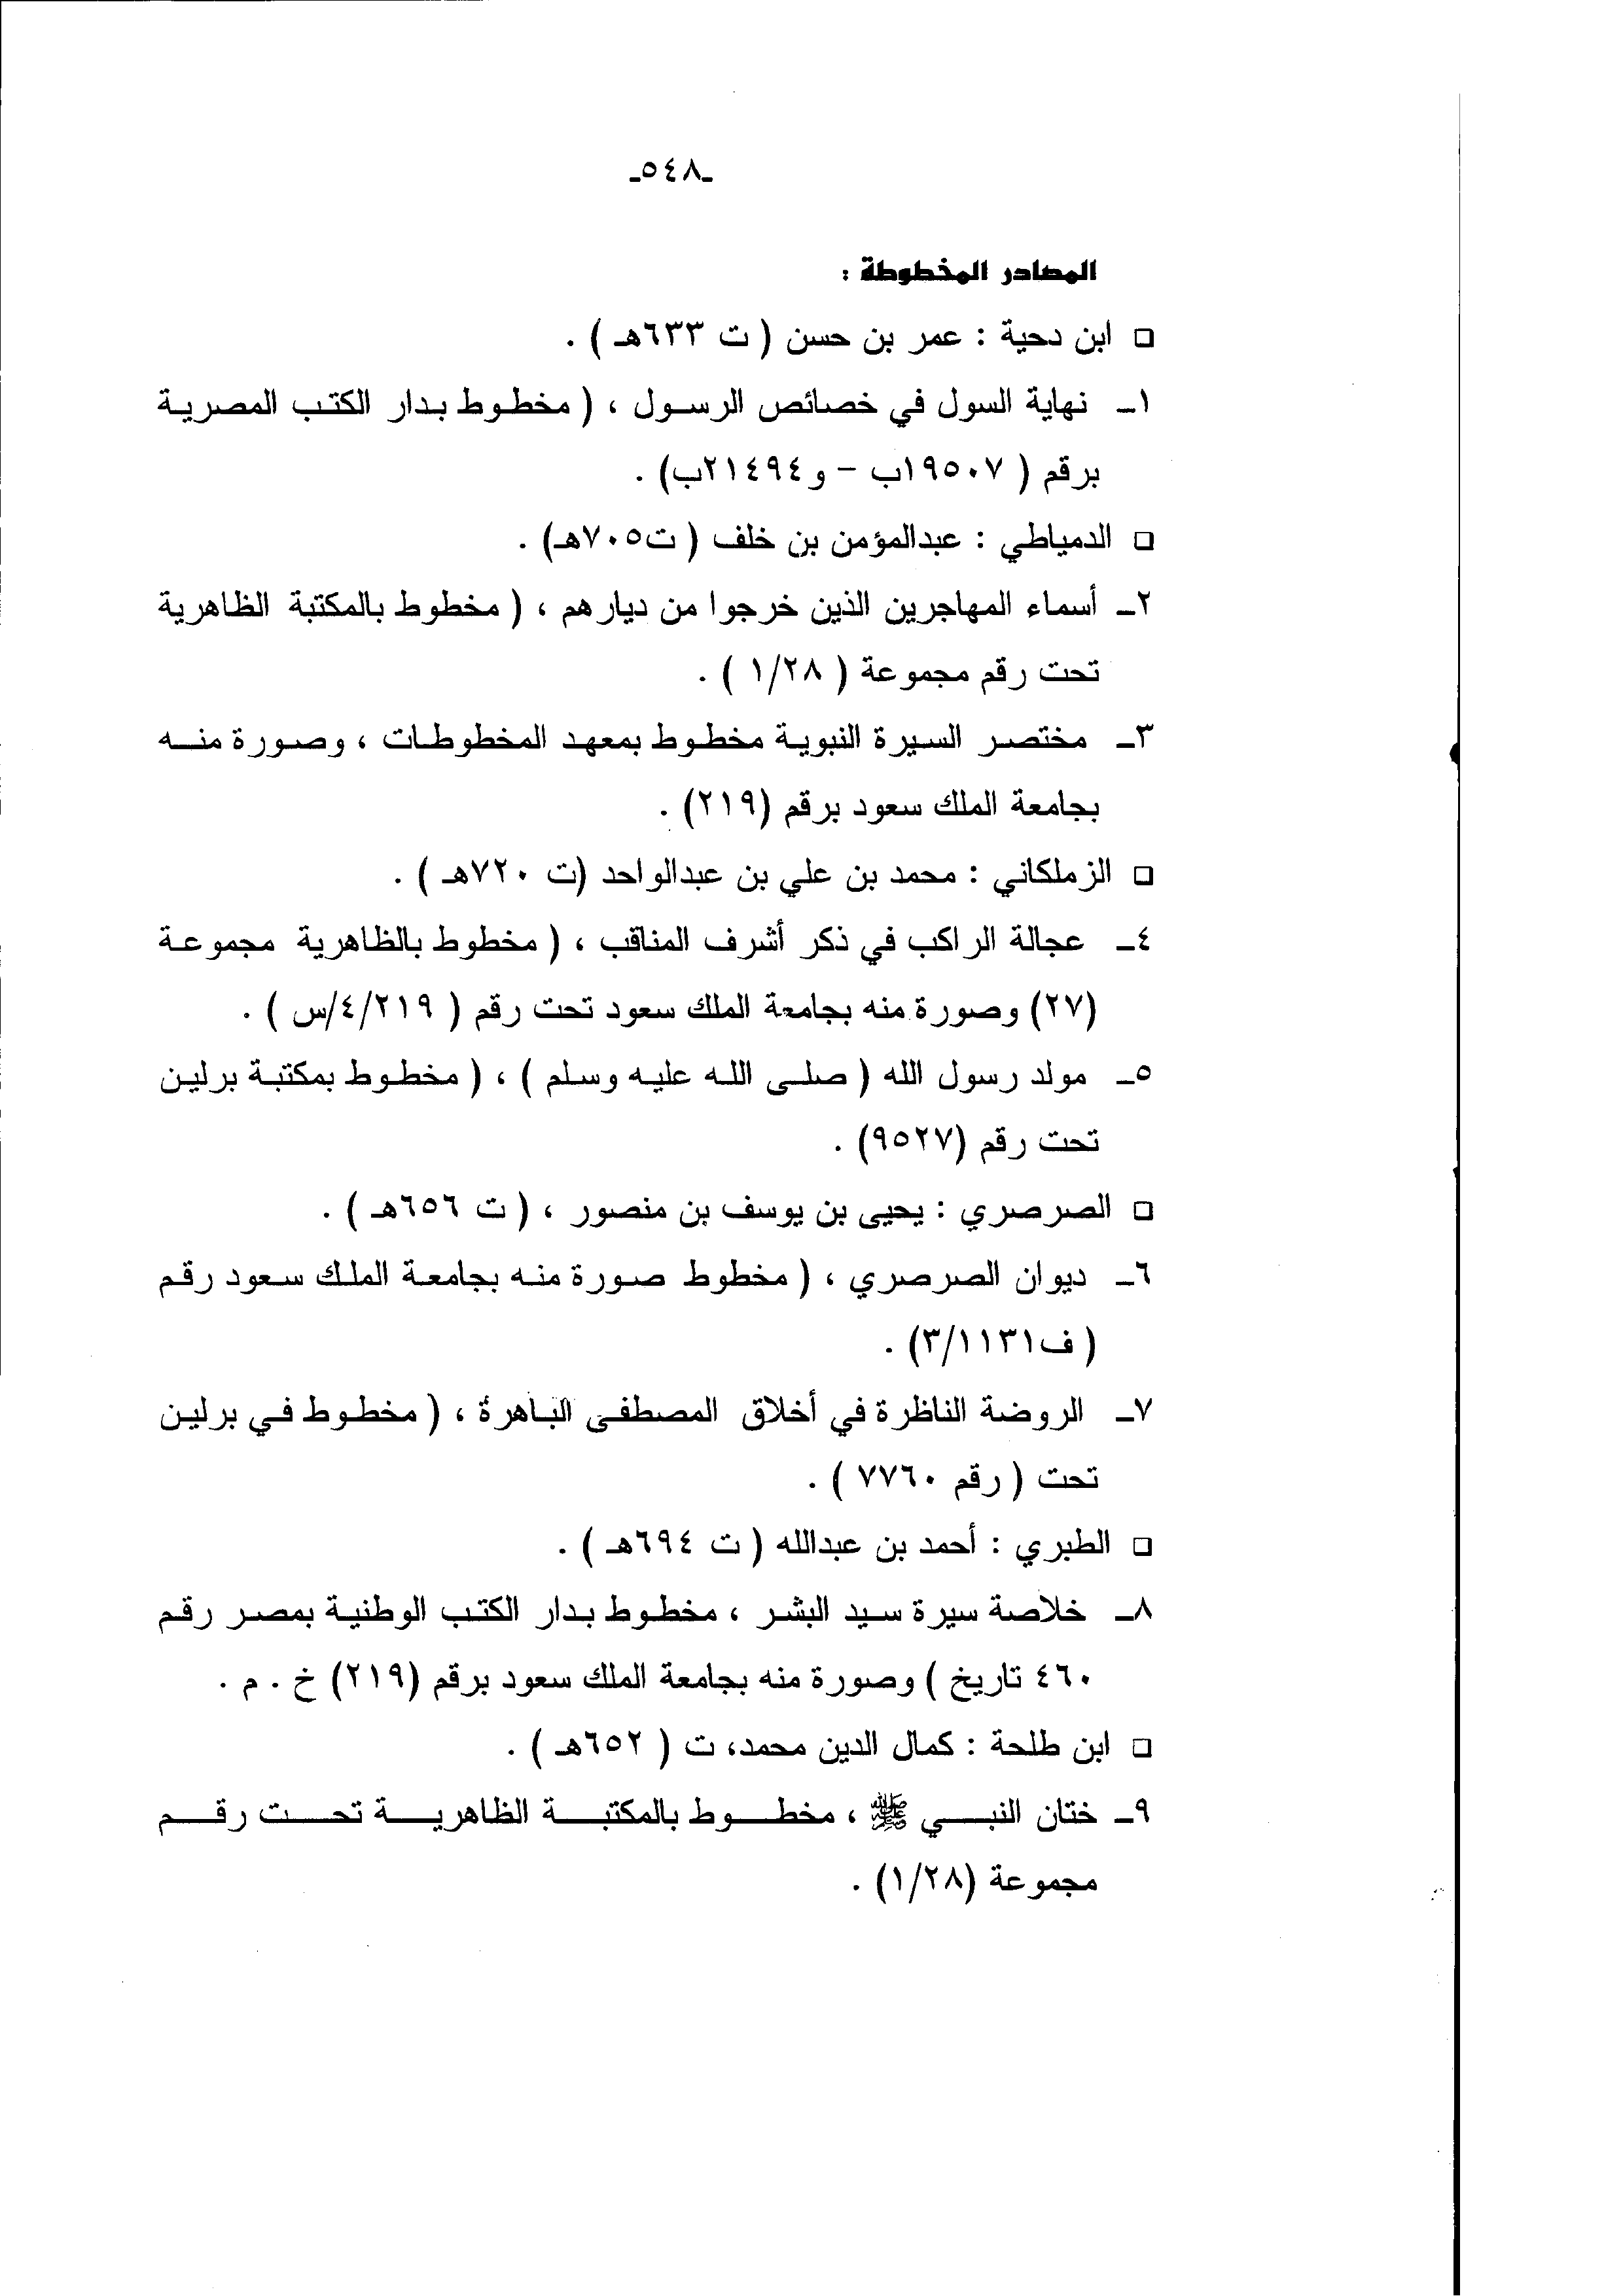 -٥٤٨-
المصادر المخطوطة :
□ ابن دحية : عمر بن حسن ( ت ٦٣٣هـ ) .
١- نهاية السول في خصائص الرسول ، ( مخطوط بدار الكتب المصرية
برقم ( ١٩٥٠٧ب - و٢١٤٩٤ب) .
□ الدمياطي : عبدالمؤمن بن خلف ( ت٧٠٥هـ) .
٢- أسماء المهاجرين الذين خرجوا من ديارهم ، ( مخطوط بالمكتبة الظاهرية
تحت رقم مجموعة ( ١/٢٨ ) .
٣- مختصر السيرة النبوية مخطوط بمعهد المخطوطات ، وصورة منه
بجامعة الملك سعود برقم (٢١٩) .
□ الزملكاني : محمد بن علي بن عبدالواحد (ت ٧٢٠هـ ) .
٤- عجالة الراكب في ذكر أشرف المناقب ، ( مخطوط بالظاهرية مجموعة
(٢٧) وصورة منه بجامعة الملك سعود تحت رقم ( ٤/٢١٩/س ) .
٥- مولد رسول الله ( صلى الله عليه وسلم ) ، ( مخطوط بمكتبة برلين
تحت رقم (٩٥٢٧) .
□ الصرصري : يحيى بن يوسف بن منصور ، ( ت ٦٥٦هـ ) .
٦- ديوان الصرصري ، ( مخطوط صورة منه بجامعة الملك سعود رقم
( ف٣/١١٣١) .
٧- الروضة الناظرة في أخلاق المصطفى الباهرة ، ( مخطوط في برلين
تحت ( رقم ٧٧٦٠ ) .
□ الطبري : أحمد بن عبدالله ( ت ٦٩٤هـ ) .
٨- خلاصة سيرة سيد البشر ، مخطوط بدار الكتب الوطنية بمصر رقم
٤٦٠ تاريخ ) وصورة منه بجامعة الملك سعود برقم (٢١٩) خ . م .
□ ابن طلحة : كمال الدين محمد، ت ( ٦٥٢هـ ) .
٩- ختان النبي ﷺ ، مخطوط بالمكتبة الظاهرية تحت رقم
مجموعة (١/٢٨) .